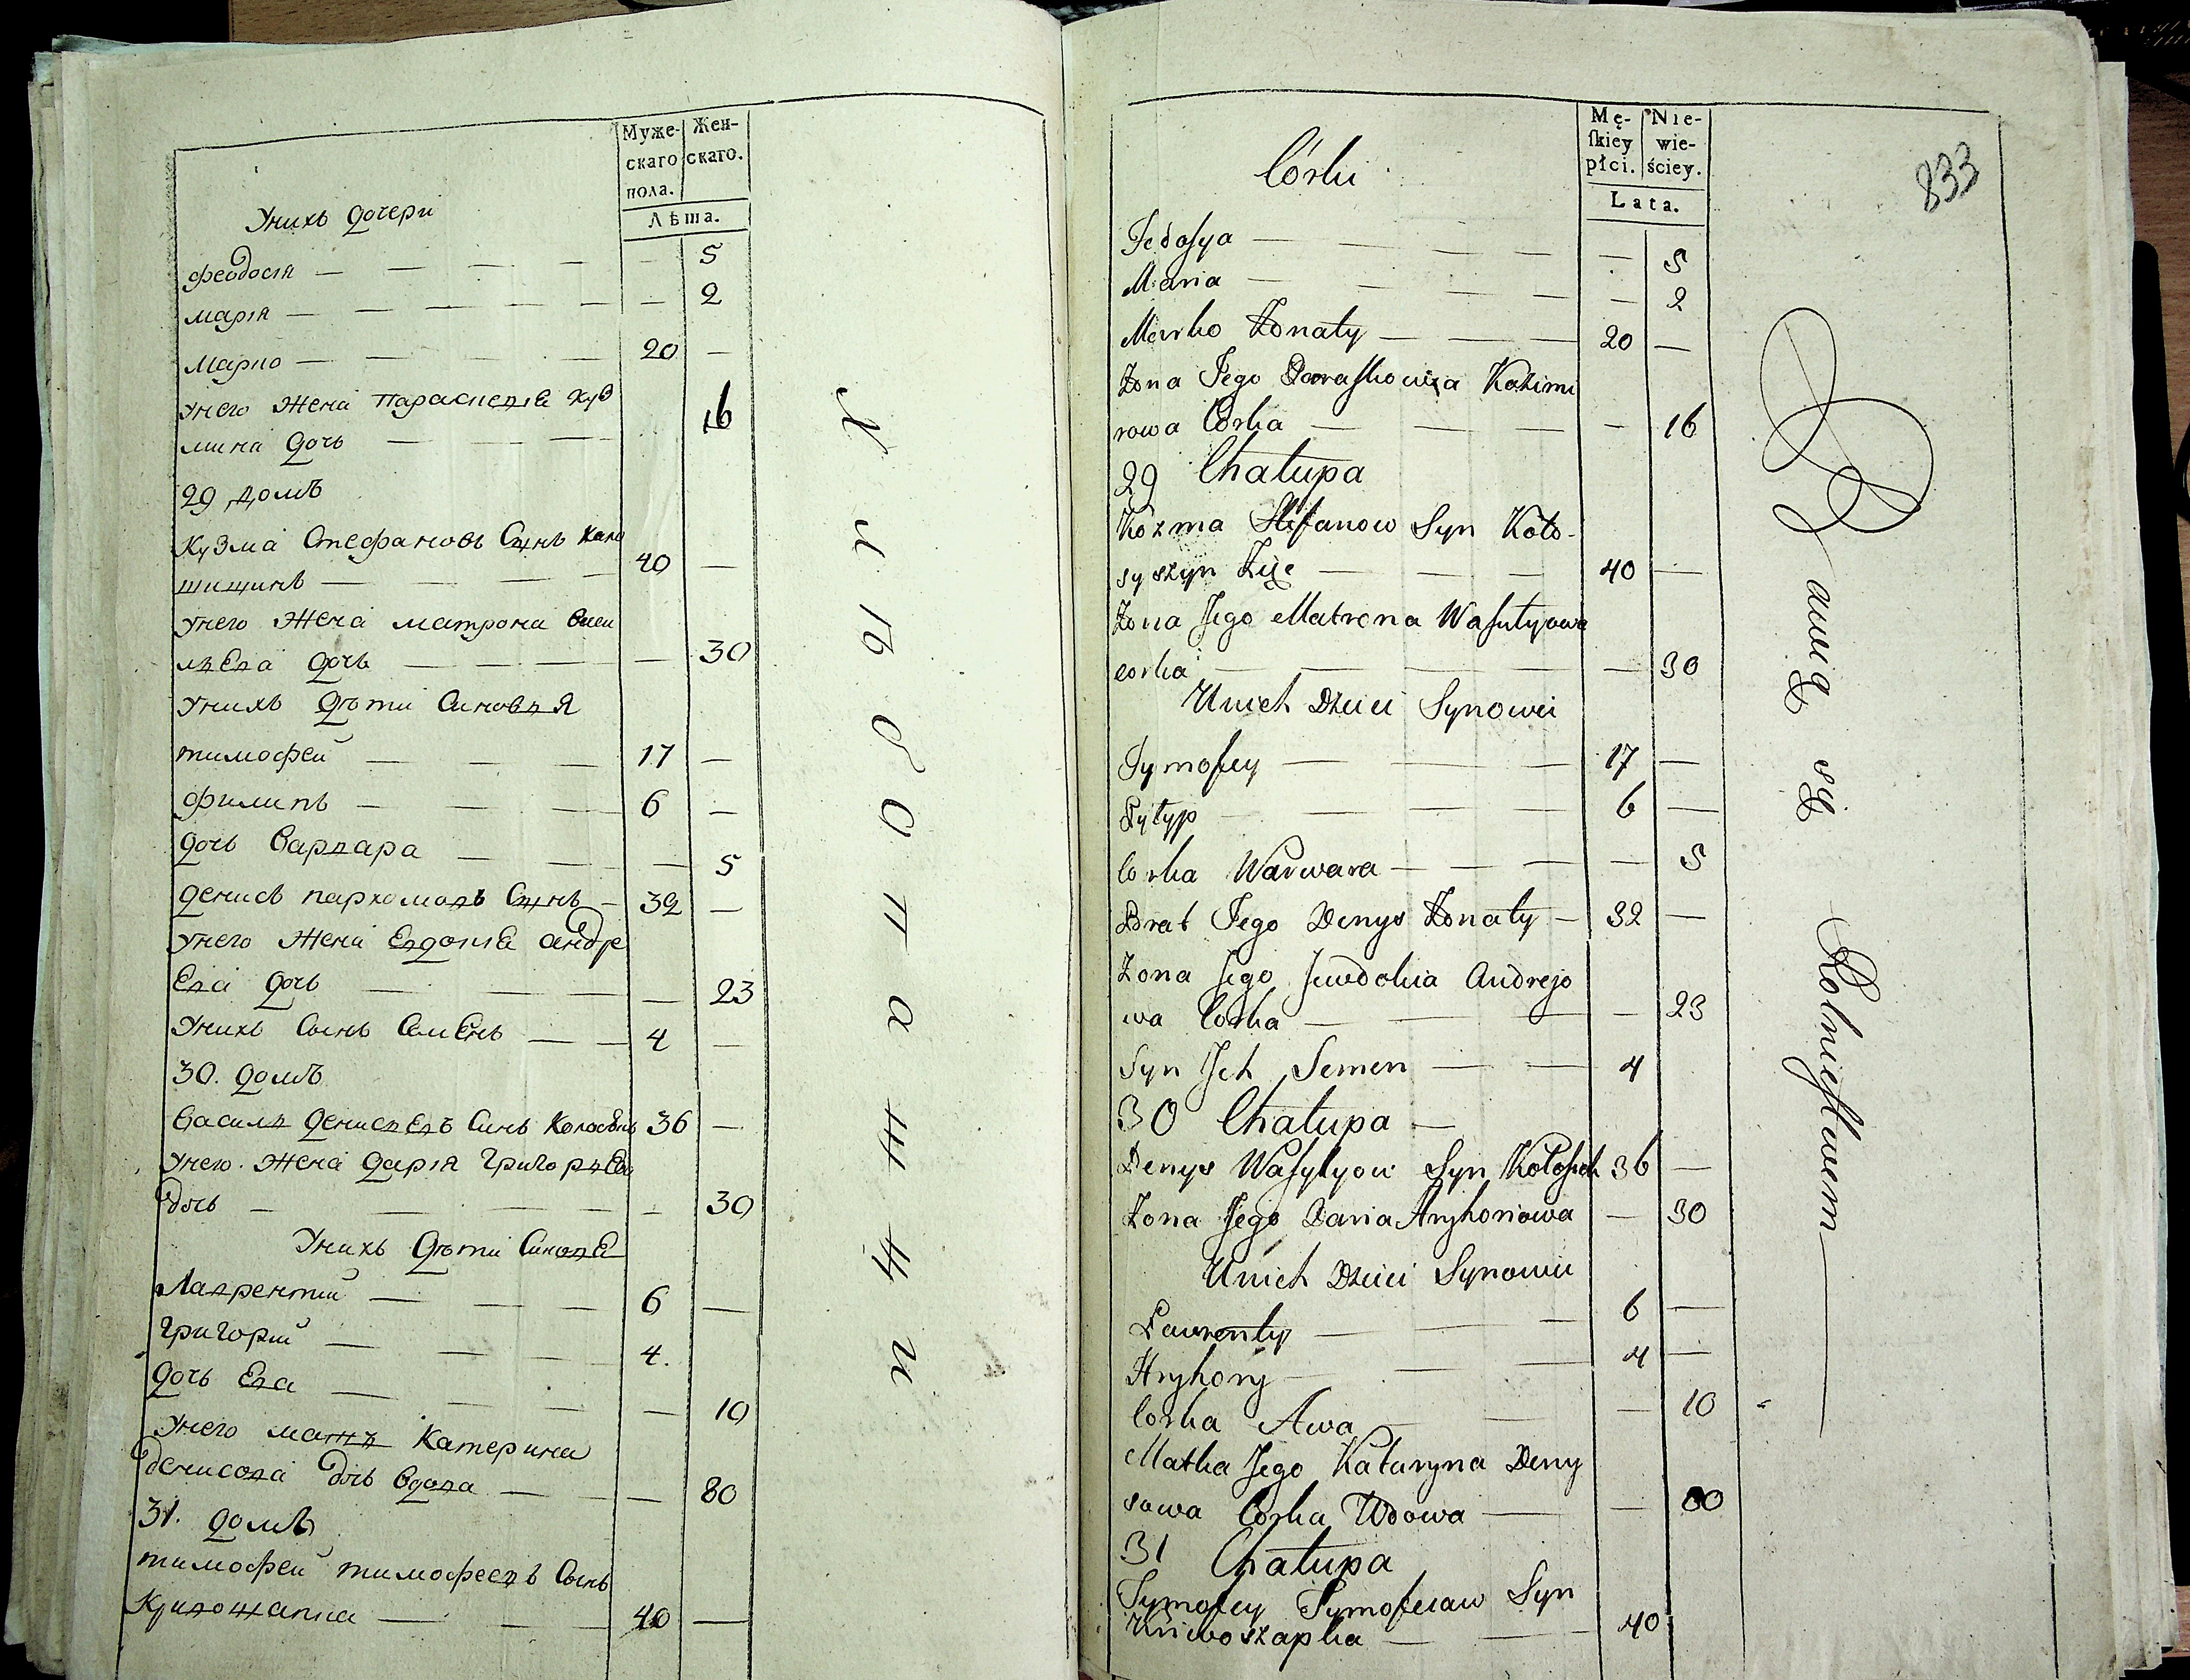 Муже-
скаго
пола.
Жен-
скаго.
Лѣта.
Унихъ дочери
Феодосія — 5
Марія — 2
Марко — 20 —
Унего Жена Параскевія Куз
мина дочь — 16
29 домъ
Кузма Стефановъ Сынъ Коло
шищинъ — 40 —
Унего Жена Матрона Васи
лѣева дочь — 30
Унихъ Дѣти Синовья
Тимофей — 17 —
Филипъ — 6 —
дочь Варвара — 5
Денисъ Пархомовъ Сынъ — 32 —
Унего Жена Евдокія Андре
ева дочь — 23
Унихъ Сынъ Семенъ — 4 —
30. домъ
Василь Денисьевъ Синъ 36 —
Унего Жена Дарія Григорьева
дочь — 30
Унихъ Дѣти Синове
Лаврентій — 6 —
Григорій — 4.
дочь Ева — 10
Унего мать Катерина
Денисова дочь Вдова — 80
31. домъ
Тимофей Тимофеевъ Сынъ
Кривошапка — 40 —
833
Mę-
ſkiey
płci.
Nie-
wie-
ściey.
Lata.
Córki
Fedosya — 5
Maria — 2
Marko Żonaty — 20 —
Żona Jego Paraskowia Kozimi
rowa Córka — 16
29 Chałupa
Kozma Stefanow Syn Koło-
syszyn — 40 —
Żona Jego Matrona Wasylyowa
corka — 30
Unich Dzieci Synowie
Tymofey — 17 —
Pylyp — 6 —
Corka Warwara — 5
Brat Jego Denys Żonaty — 32 —
Żona Jego Jewdokia Andrejo
wa Corka — 23
Syn Jch Semen — 4
30 Chałupa —
Denys Wasylyow Syn 36 —
Żona Jego Daria Hryhoriowa — 30
Unich Dzieci Synowie
Lawrenty — 6 —
Hryhory — 4 —
Corka Awa — 10
Matka Jego Kataryna Deny
sowa Corka Wdowa — 80
31 Chałupa
Tymofey Tymofeiaw Syn
Kriwoszapka — 40
Bawią się Rolnictwem